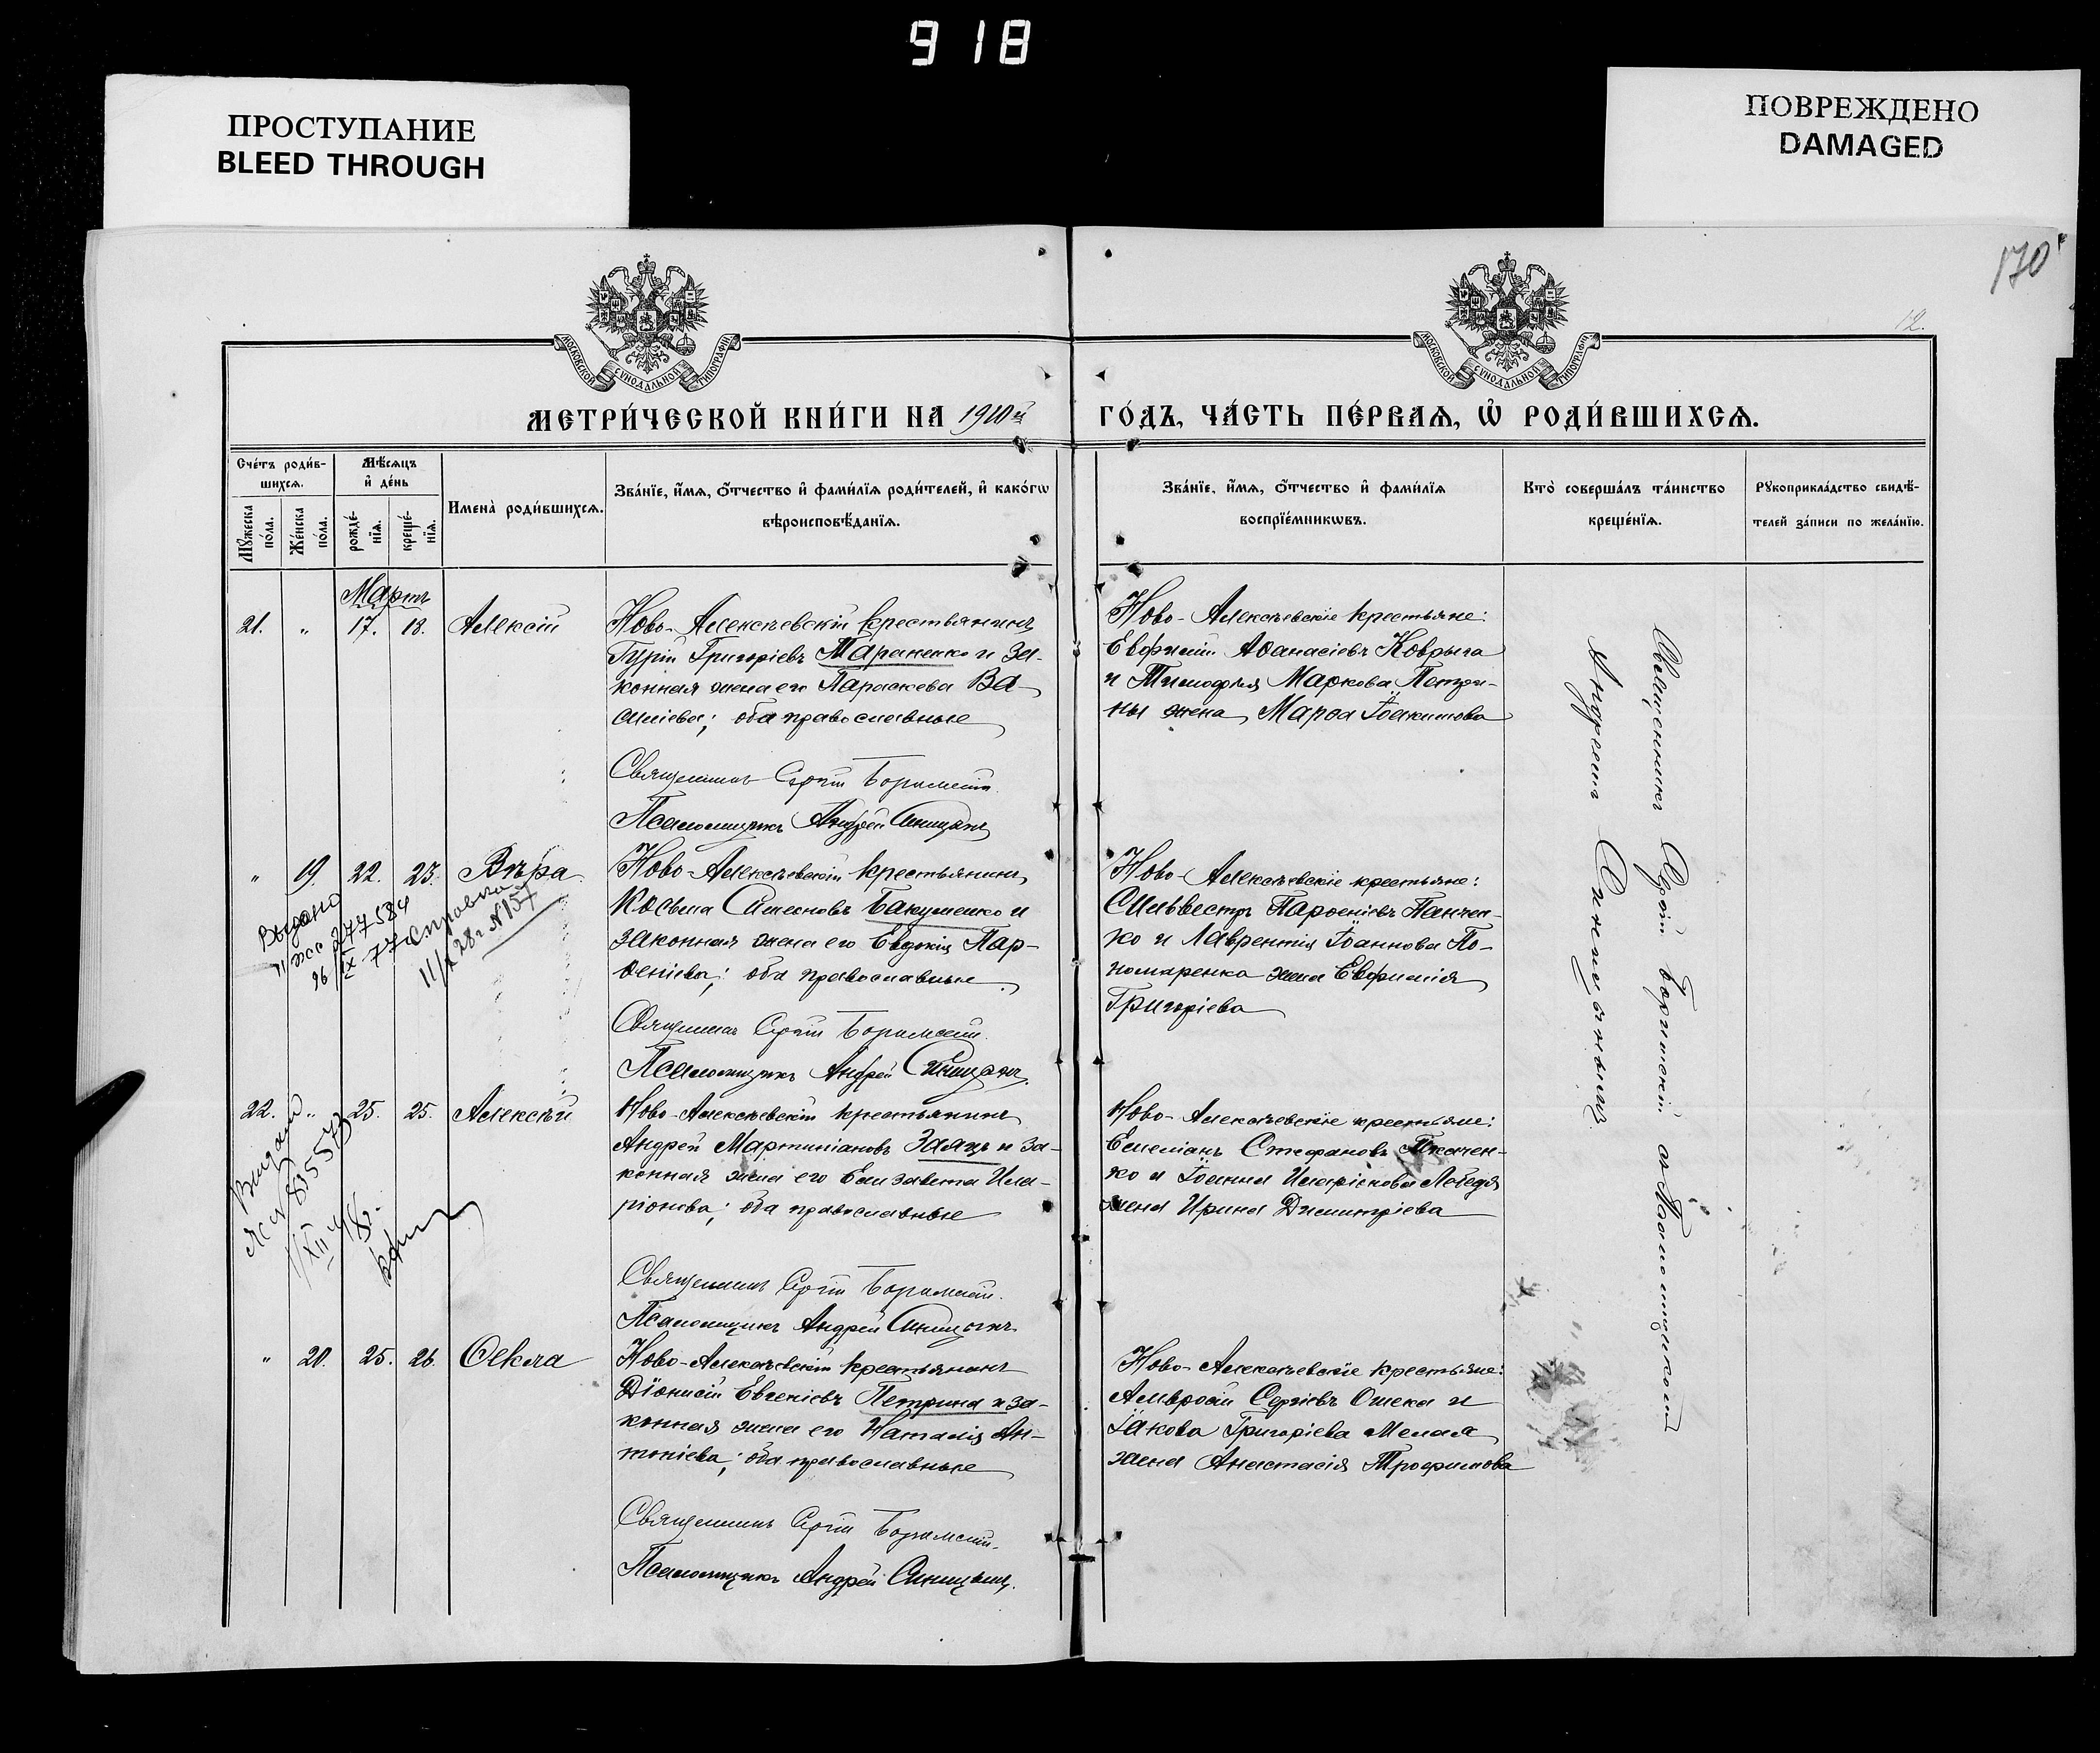 918
ПРОСТУПАНИЕ
BLEED THROUGH
ПОВРЕЖДЕНО
DAMAGED
170
12.
МОСКОВСКОЙ СУНОДАЛЬНОЙ ТИПОГРАФІИ
МОСКОВСКОЙ СУНОДАЛЬНОЙ ТИПОГРАФІИ
МЕТРИ́ЧЕСКОЙ КНИ́ГИ НА 1910й
ГО́ДЪ, ЧА́СТЬ ПЕ́РВАѦ, Ѽ РОДИ́ВШИХСѦ.
Сче́тъ роди́в-
шихсѧ.
Мꙋ́жеска
по́ла.
Же́нска
по́ла.
Мѣ́сѧцъ
и҆ де́нь
рожде́-
нїѧ.
креще́-
нїѧ.
Имена̀ роди́вшихсѧ.
Зва́нїе, и҆́мѧ, ѻ҆́тчество и҆ фами́лїѧ роди́телей, и҆ како́гѡ
вѣроисповѣ́данїѧ.
Зва́нїе, и҆́мѧ, ѻ҆́тчество и҆ фами́лїѧ
воспрїе́мникѡвъ.
Кто̀ соверша́лъ та́инство
креще́нїѧ.
Рꙋкоприкла́дство свидѣ́-
телей за́писи по жела́нїю.
Мартъ
21. " 17. 18. Алексій
Ново-Алексѣевскій крестьянинъ
Гурій Григоріевъ Тараненко и за-
конная жена его Параскева Ва-
силіева; оба православные
Священникъ Сергій
Псаломщикъ Андрей Синицынъ
Ново-Алексѣевскіе крестьяне:
Евфимій Аѳанасіевъ Коврыга
и Тимоѳея Маркова Петри-
ны жена Марѳа Іоакимова
" 19. 22. 23. Вѣра
Выдано
277584
26/IX 77
Справка
11/X 28г. №157
Ново-Алексѣевскій крестьянинъ
Косьма Симеоновъ Бакуменко и
законная жена его Евдокія Пар-
ѳеніева; оба православные
Священникъ Сергій
Псаломщикъ Андрей Синицынъ
Ново-Алексѣевскіе крестьяне:
Сильвестръ Парѳеніевъ Панчен-
ко и Лаврентія Іоаннова По-
номаренка жена Евфимія
Григоріева
22. " 25. 25. Алексѣй
Ново-Алексѣевскій крестьянинъ
Андрей Мартиніановъ Заяцъ и за-
конная жена его Елизавета Ила-
ріонова; оба православные
Священникъ Сергій
Псаломщикъ Андрей Синицынъ
Ново-Алексѣевскіе крестьяне:
Емеліанъ Стефановъ Ткачен-
ко и Іоанна Иларіонова Лебедя
жена Ирина Димитріева
" 20. 25. 26. Ѳекла
Ново-Алексѣевскій крестьянинъ
Діонисій Евгеніевъ Петрина и за-
конная жена его Наталія Ан-
тоніева; оба православные
Священникъ Сергій
Псаломщикъ Андрей Синицынъ.
Ново-Алексѣевскіе крестьяне:
Амвросій Сергіевъ Ошека и
Іакова Григоріева
жена Анастасія Трофимова
Священникъ Сергій съ Псаломщикомъ
Андреемъ Синицынымъ.